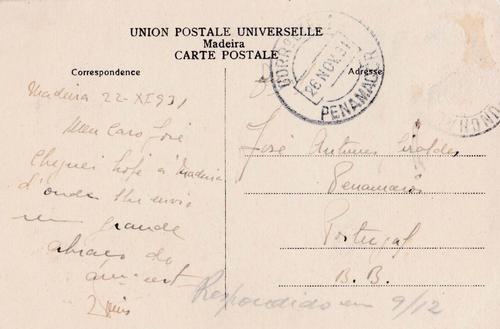 UNION POSTALE UNIVERSELLE
Madeira
CARTE POSTALE
Correspondence
Adresse
CORREIO
26 NOV. 31
PENAMACOR
Madeira 22-XI 931
Meu Caro José
Cheguei hoje á Madeira
d'onde lhe envio
um grande
abraço do
José Antunes
Penamacor
Portugal
B. B.
Respondido em 9/12